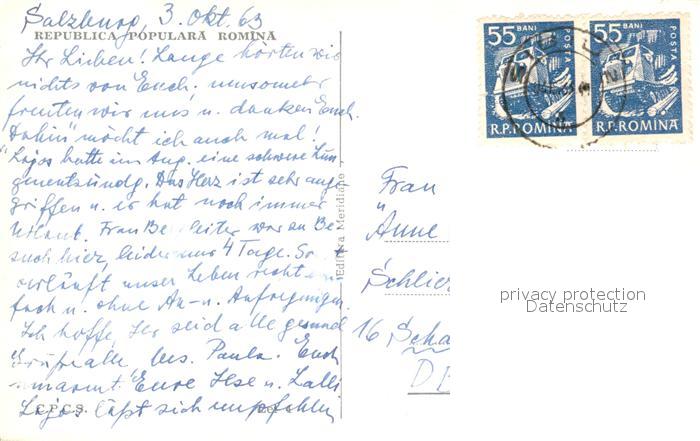 Salzburg, 3. Okt. 63
REPUBLICA POPULARĂ ROMÎNĂ
Ihr Lieben! Lange hörten wir
nichts von Euch. umsomehr
freuten wir uns u. danken Euch.
"Dahin" möcht ich auch mal!
Lajos hatte im Aug. eine schwere Lun
genentzündg. Das Herz ist sehr ange
griffen u. er hat noch immer
Urlaub. Frau war zu Be
such hier, leider nur 4 Tage. So
verläuft unser Leben recht ein
fach u. ohne An- u. Aufregungen.
Ich hoffe, Ihr seid alle gesund
Grüße alle bes. Paula. Euch
umarmt Eure Ilse u. Lalli
Lajos läßt sich empfehlen
C.P.C.S.
Editura Meridiane
55 BANI
POSTA
R.P.ROMINA
55 BANI
POSTA
R.P.ROMINA
Frau
Änne
Schlie
16 Scha
D
privacy protection
Datenschutz